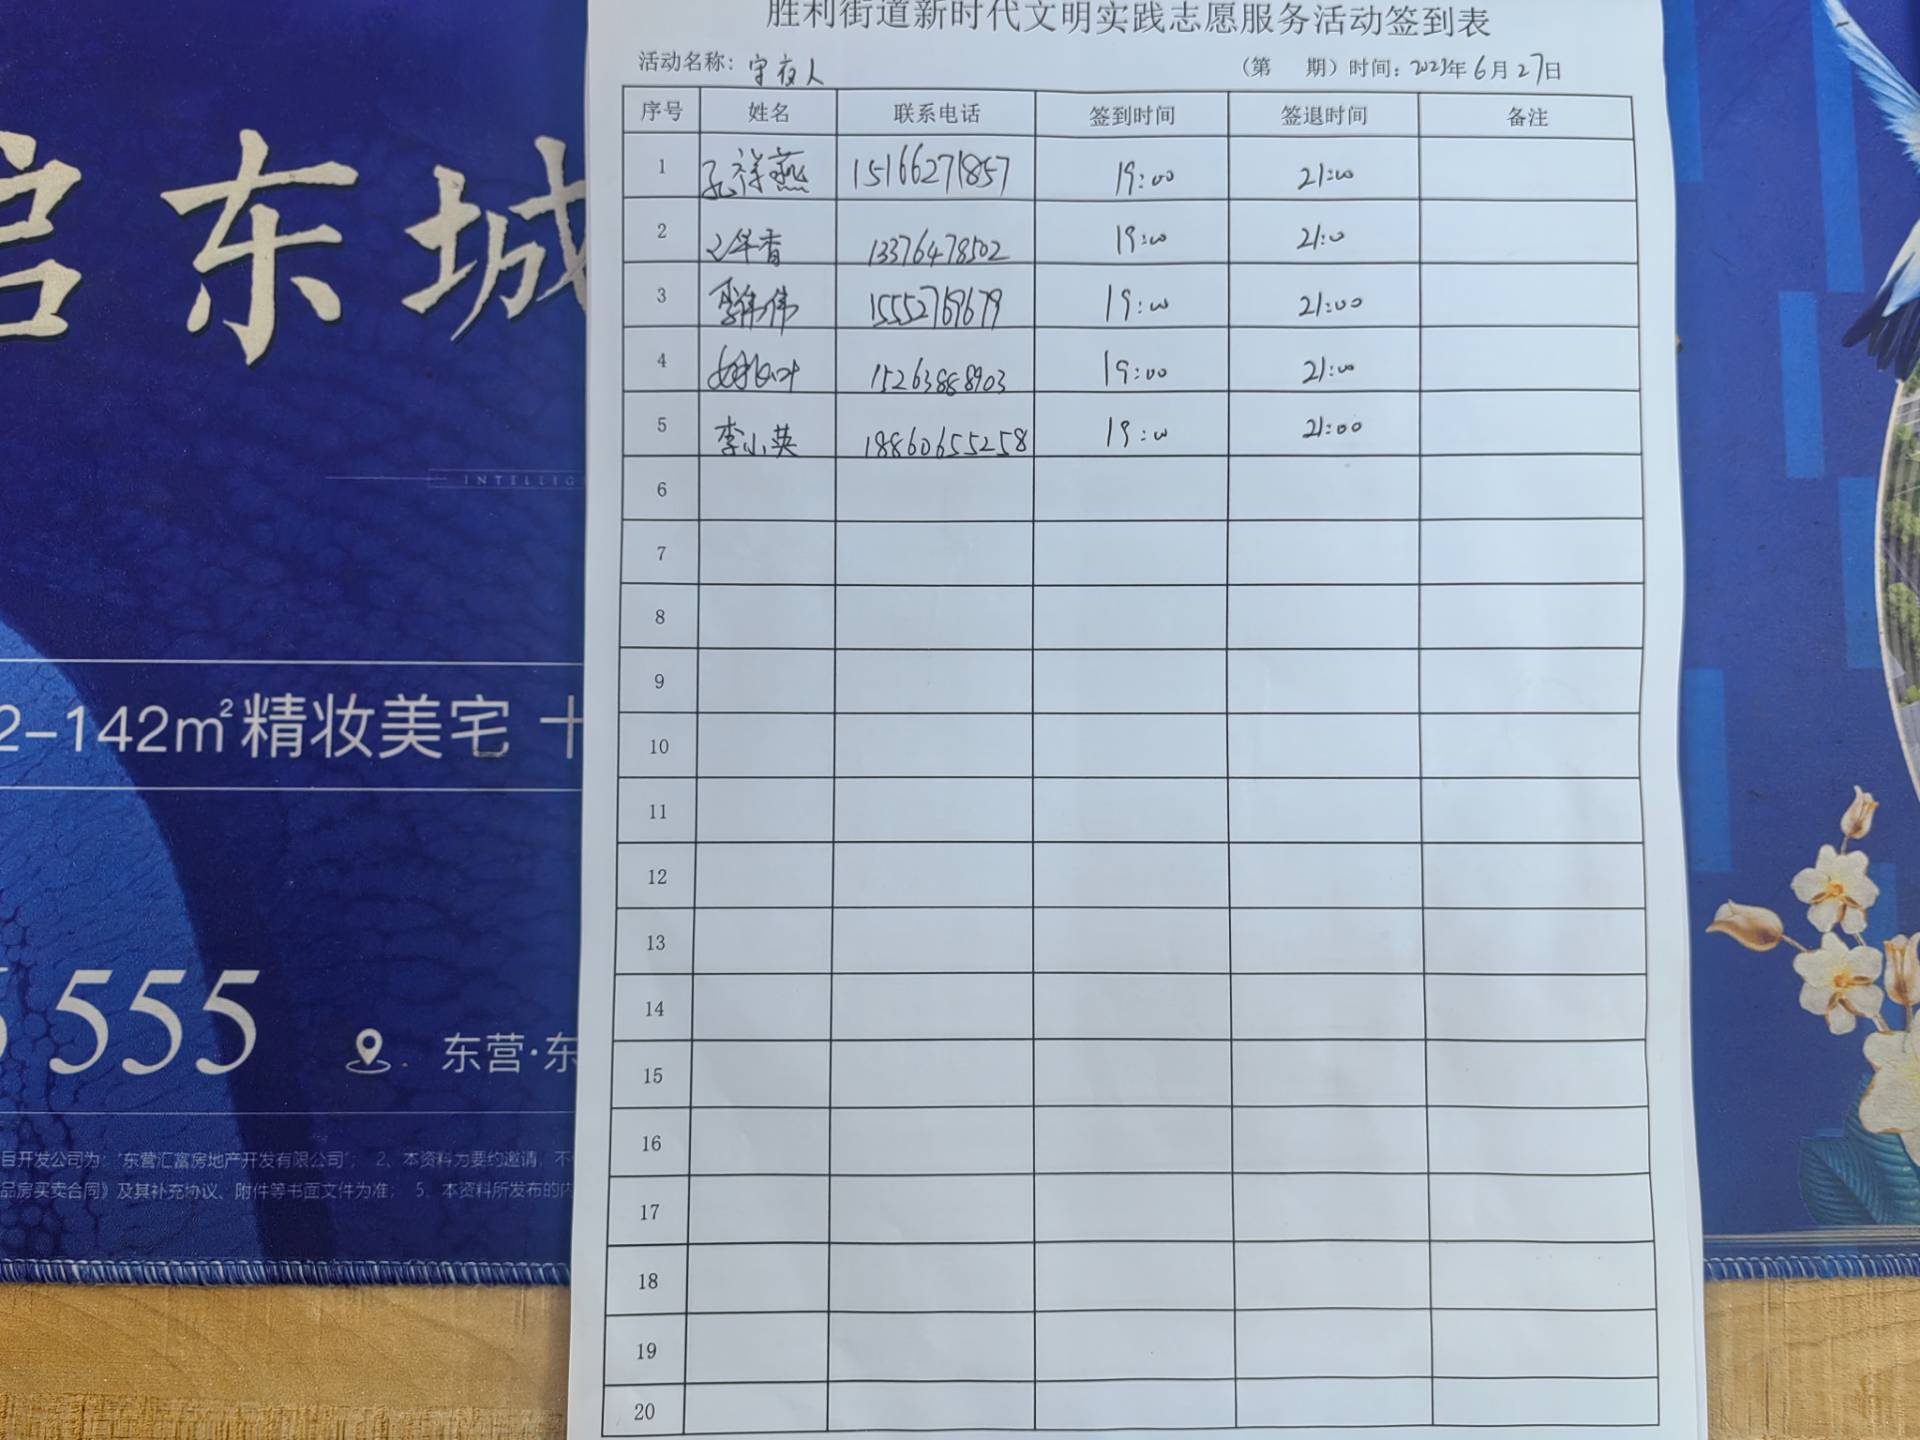 胜利街道新时代文明实践志愿服务活动签到表
活动名称：守夜人 （第 期）时间：2023年6月27日
序号 姓名 联系电话 签到时间 签退时间 备注
1 孔祥燕 15166271857 19:00 21:00
2 13376478502 19:00 21:00
3 15552769679 19:00 21:00
4 15263888903 19:00 21:00
5 李小英 18860655258 19:00 21:00
6
7
8
9
10
11
12
13
14
15
16
17
18
19
20
启东城
INTELLIG
2-142m²精妆美宅 十
555
东营·东
目开发公司为："东营汇富房地产开发有限公司"； 2、本资料为要约邀请，不
品房买卖合同》及其补充协议、附件等书面文件为准； 5、本资料所发布的内